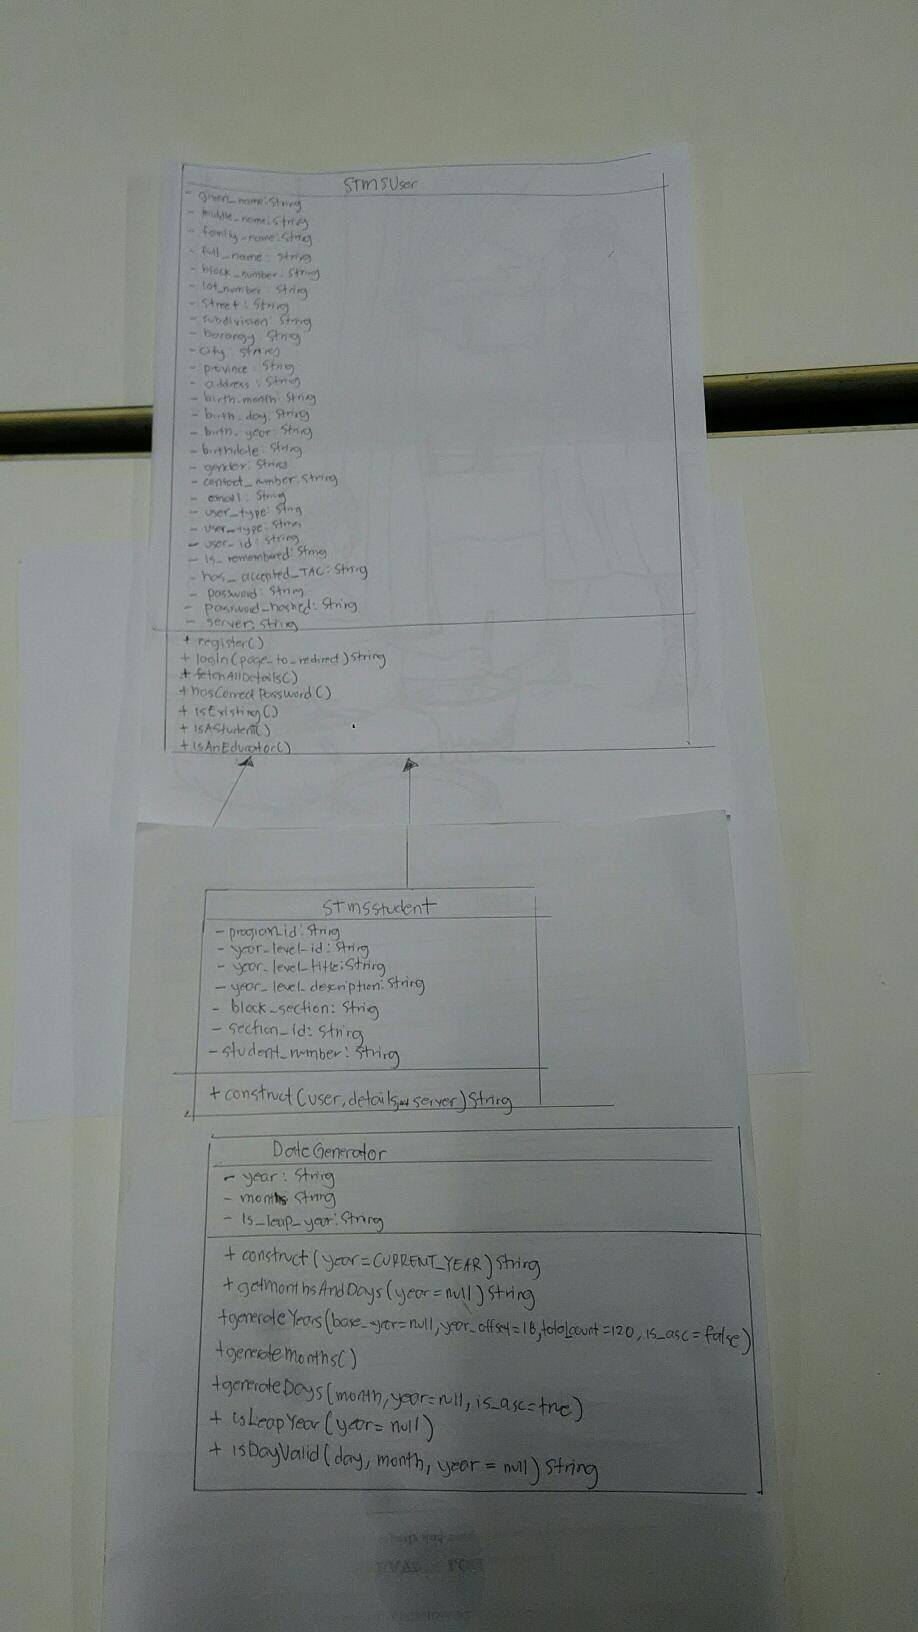 STMSUser
- given_name:String
- middle_name:String
- family_name:String
- full_name: String
- block_number: String
- lot_number: String
- Street: String
- subdivision: String
- barangy String
- city: String
- province: String
- address: String
- birth_month: String
- birth_day: String
- birth_year: String
- birthdate: String
- gender: String
- contact_number: String
- email: String
- user_type: String
- user_type: String
- user_id: String
- is_remembered: String
- has_accepted_TAC: String
- password: String
- password_hashed: String
- server: String
+ register()
+ login(page_to_redirect)String
+ fetchAllDetails()
+ hasCorrectPassword()
+ isExisting()
+ isAStudent()
+ isAnEducator()
STMSStudent
- program_id: String
- year_level_id: String
- year_level_title: String
- year_level_description: String
- block_section: String
- section_id: String
- student_number: String
+ construct(user, details, server) String
DateGenerator
- year: String
- months String
- is_leap_year: String
+ construct(year=CURRENT_YEAR) String
+ getmonthsAndDays(year=null) String
+generateYears(base_year=null, year_offset=18, total_count=120, is_asc=false)
+generatemonths()
+generateDays(month, year=null, is_asc=true)
+ isLeapYear(year=null)
+ isDayValid(day, month, year=null) String